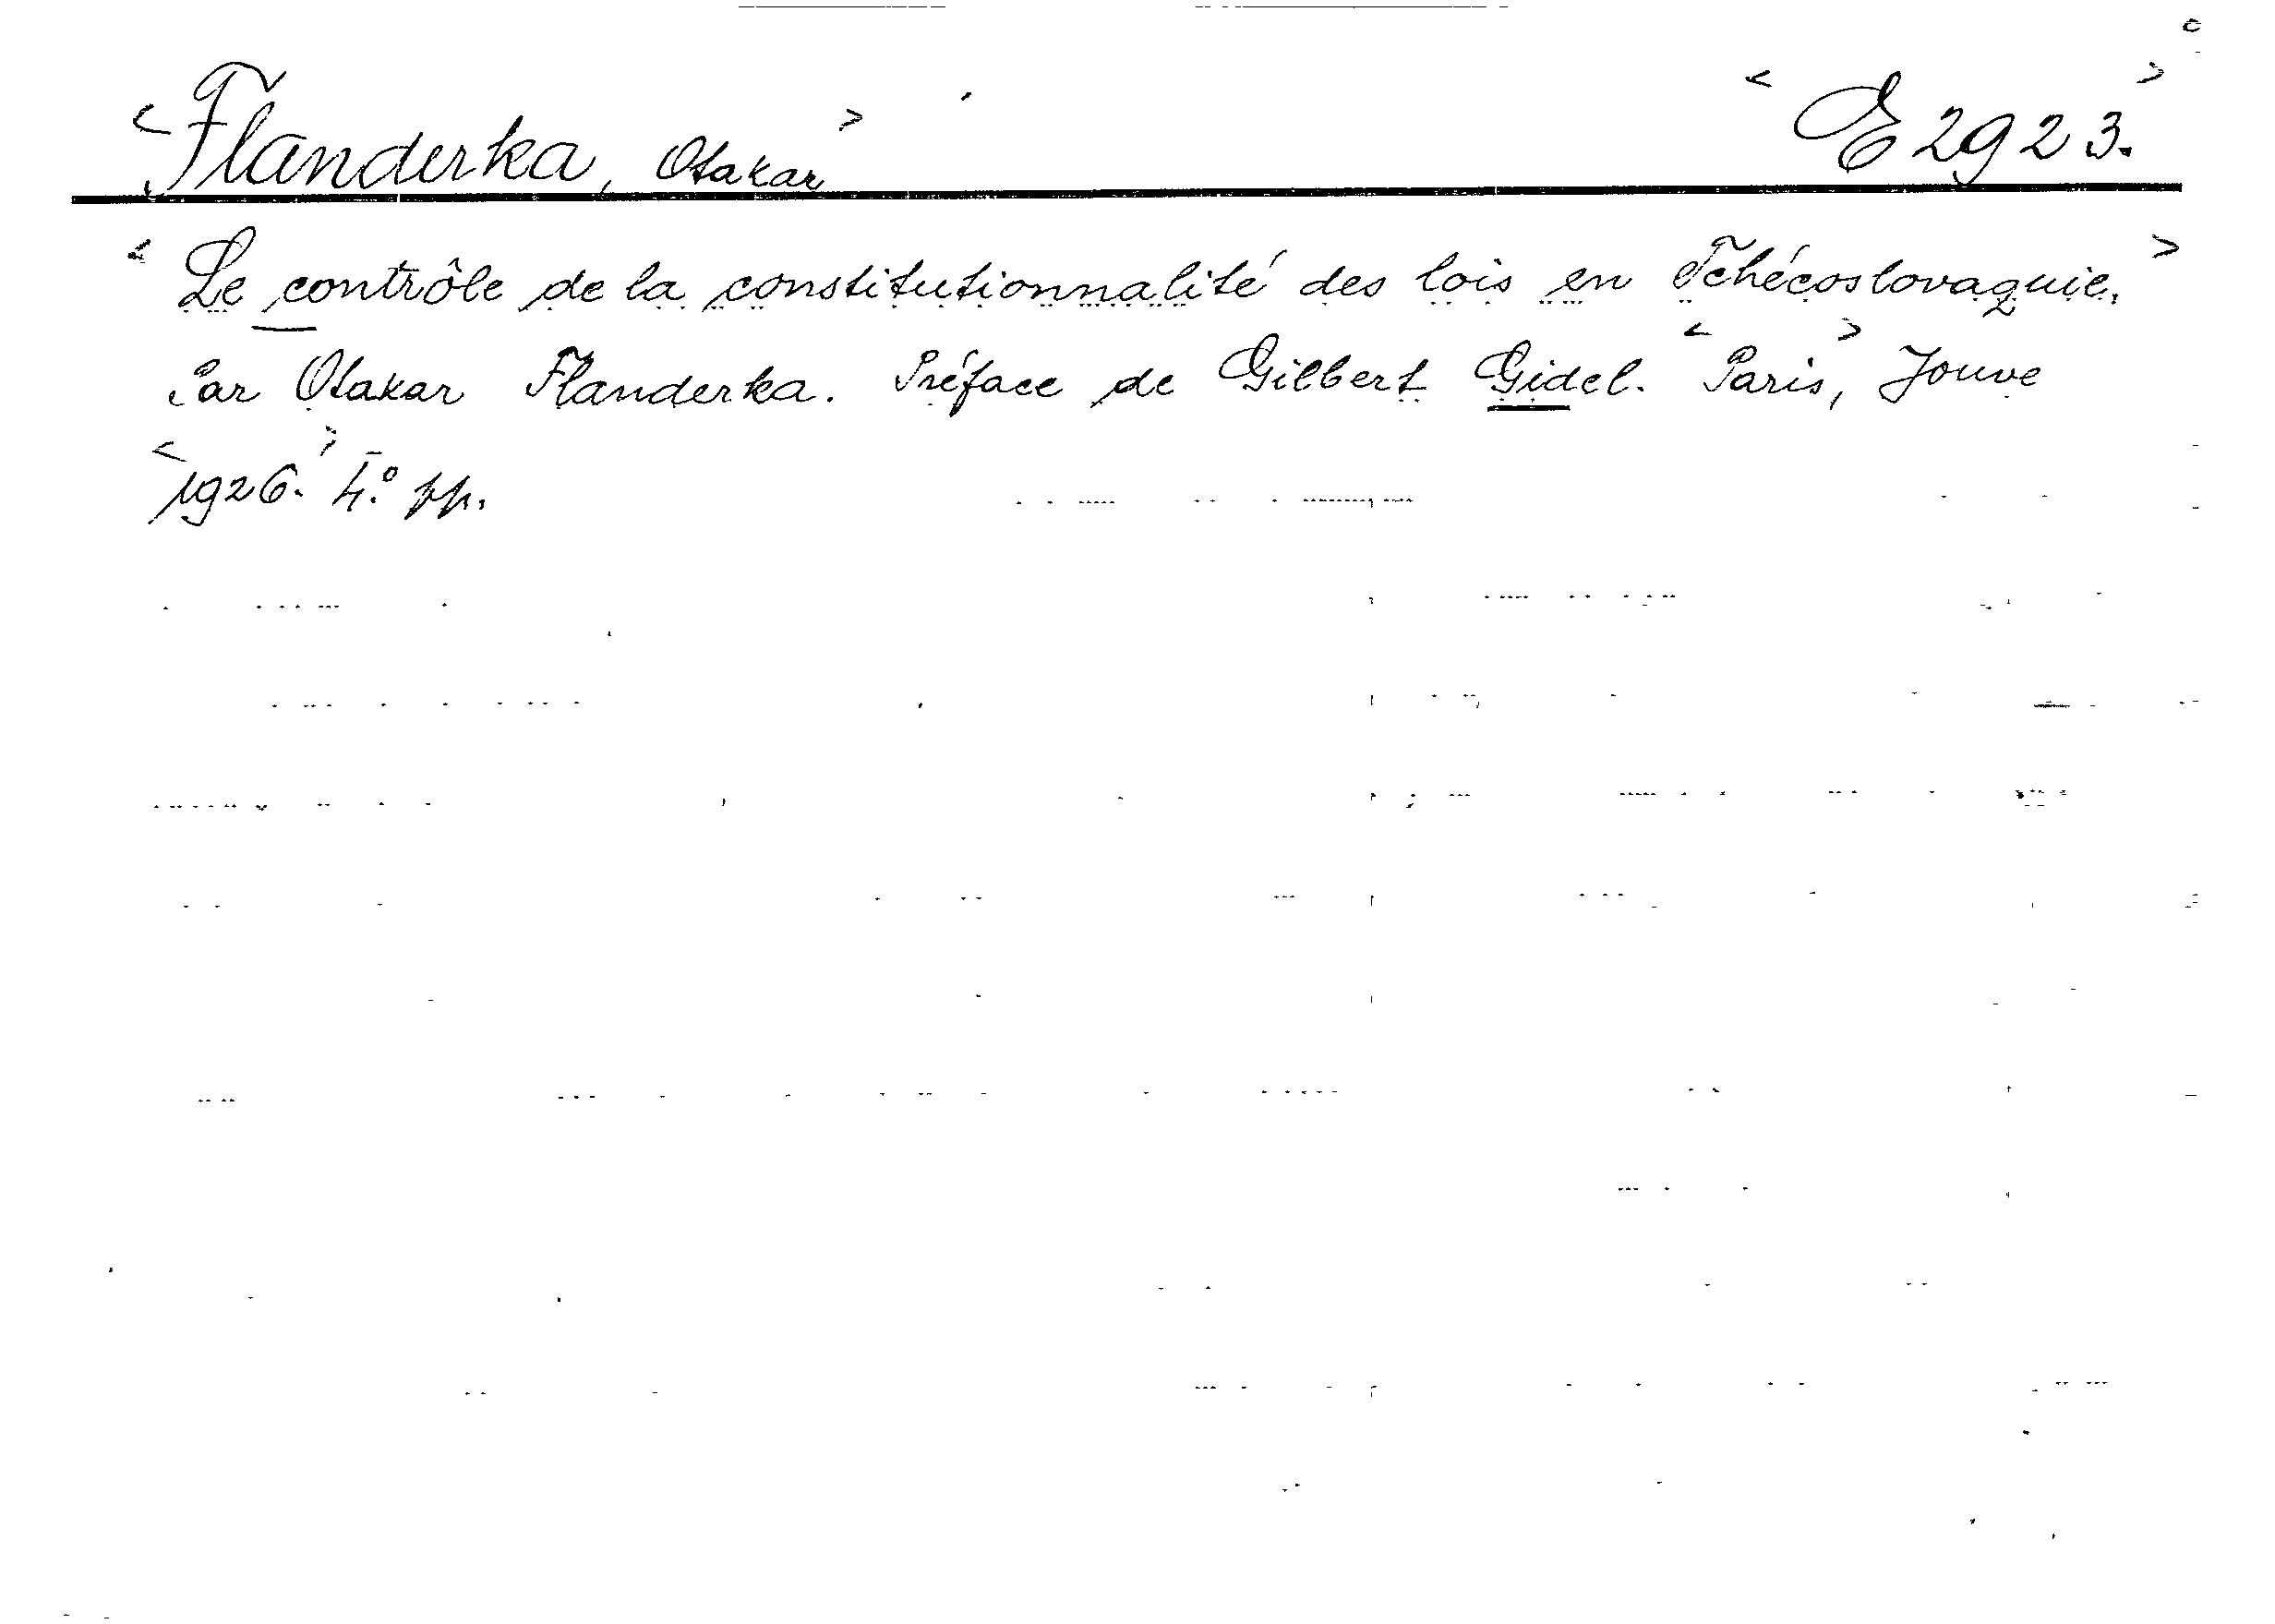 <Flanderka, Otakar> <E 2923.>
<Le contrôle de la constitutionnalité des lois en Tchécoslovaquie.>
Par Otakar Flanderka. Préface de Gilbert Gidel. <Paris>, Jouve
<1926.> 4.° pp.